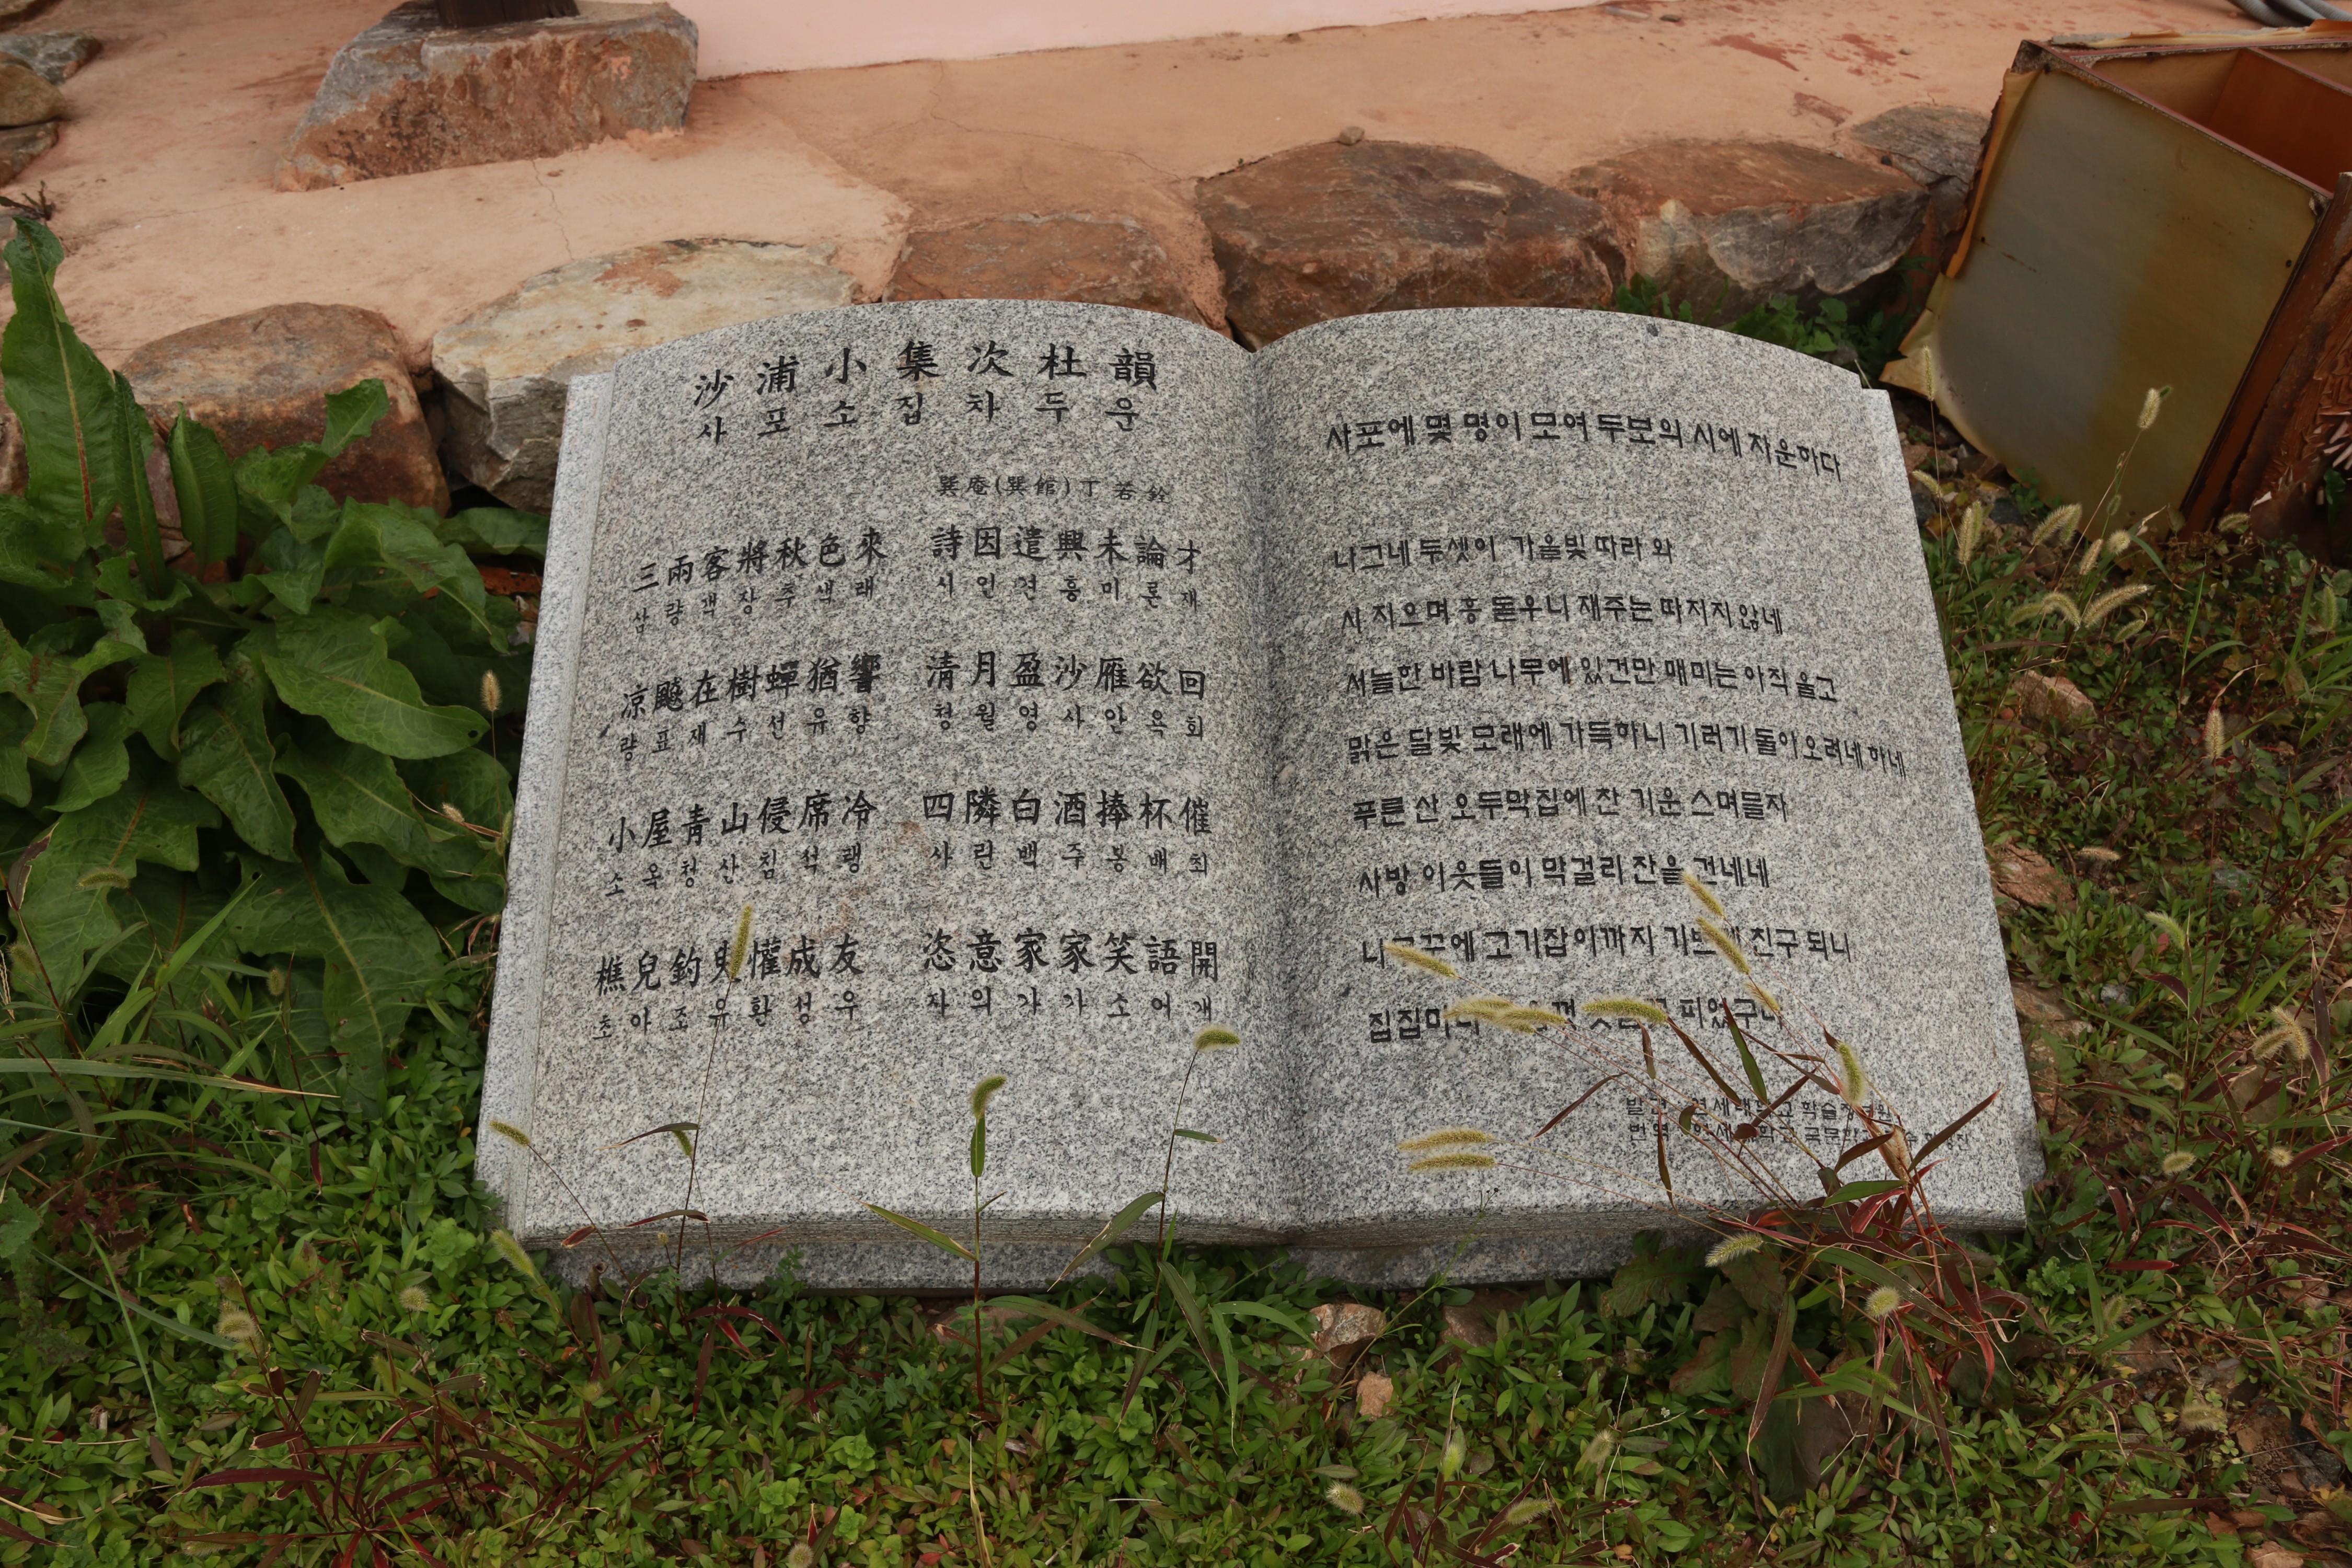 沙浦小集次杜韻
사포소집차두운
巽庵(巽館) 丁若銓
三兩客將秋色來 詩因遣興未論才
삼량객장추색래 시인견흥미론재
凉飈在樹蟬猶響 清月盈沙雁欲回
량표재수선유향 청월영사안욕회
小屋青山侵席冷 四隣白酒捧杯催
소옥청산침석랭 사린백주봉배최
樵兒釣叟懽成友 恣意家家笑語開
초아조유환성우 자의가가소어개
사포에 몇 명이 모여 두보의 시에 차운하다
나그네 두셋이 가을빛 따라 와
시 지으며 흥 돋우니 재주는 따지지 않네
서늘한 바람 나무에 있건만 매미는 아직 울고
맑은 달빛 모래에 가득하니 기러기 돌아오려네 하네
푸른 산 오두막집에 찬 기운 스며들자
사방 이웃들이 막걸리 잔을 건네네
고기잡이까지 친구 되니
집집마다 피었구나
발견 연세대학교 학술정보원
번역 연세대학교